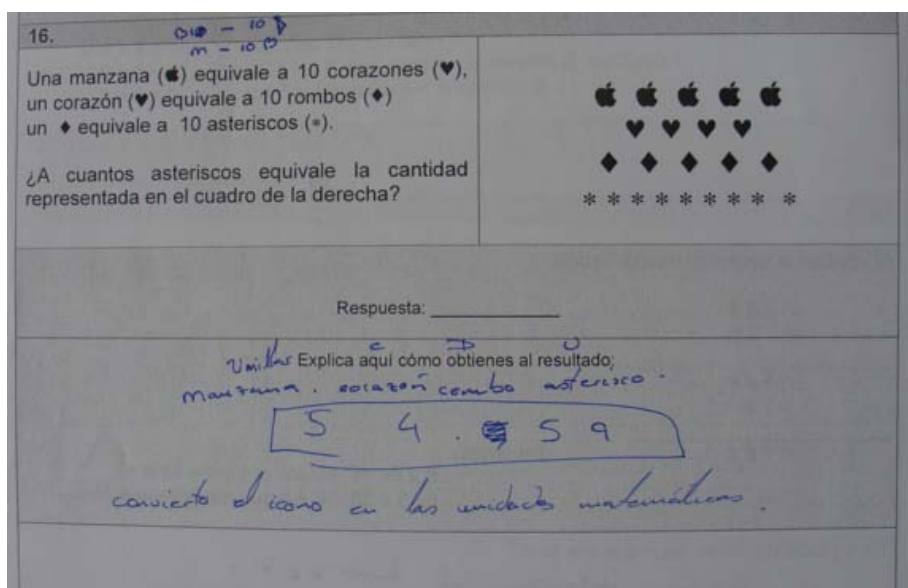 16.
- 10
m - 10
Una manzana () equivale a 10 corazones (♥),
un corazón (♥) equivale a 10 rombos (♦)
un ♦ equivale a 10 asteriscos (*).
¿A cuantos asteriscos equivale la cantidad
representada en el cuadro de la derecha?
* * * * * * * * *
Respuesta: ____________
C D U
Explica aquí cómo obtienes al resultado;
manzana . corazón asterisco .
5 4 . 5 9
convierto el icono en las unidades matemáticas .